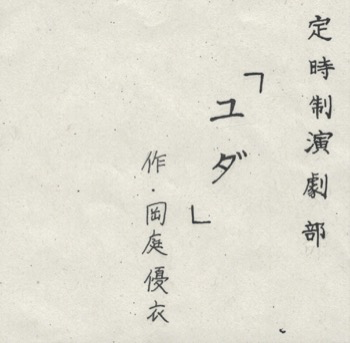 定時制演劇部
「ユダ」
作・岡庭優衣